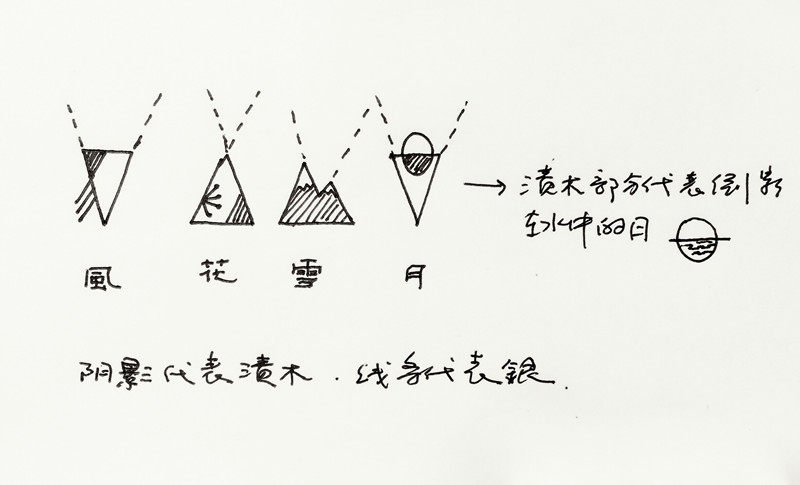 風 花 雪 月
→ 漬木部分代表倒影
在水中的月
阴影代表漬木．线条代表銀．